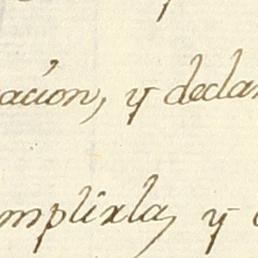 ación, y decla
mplirla, y